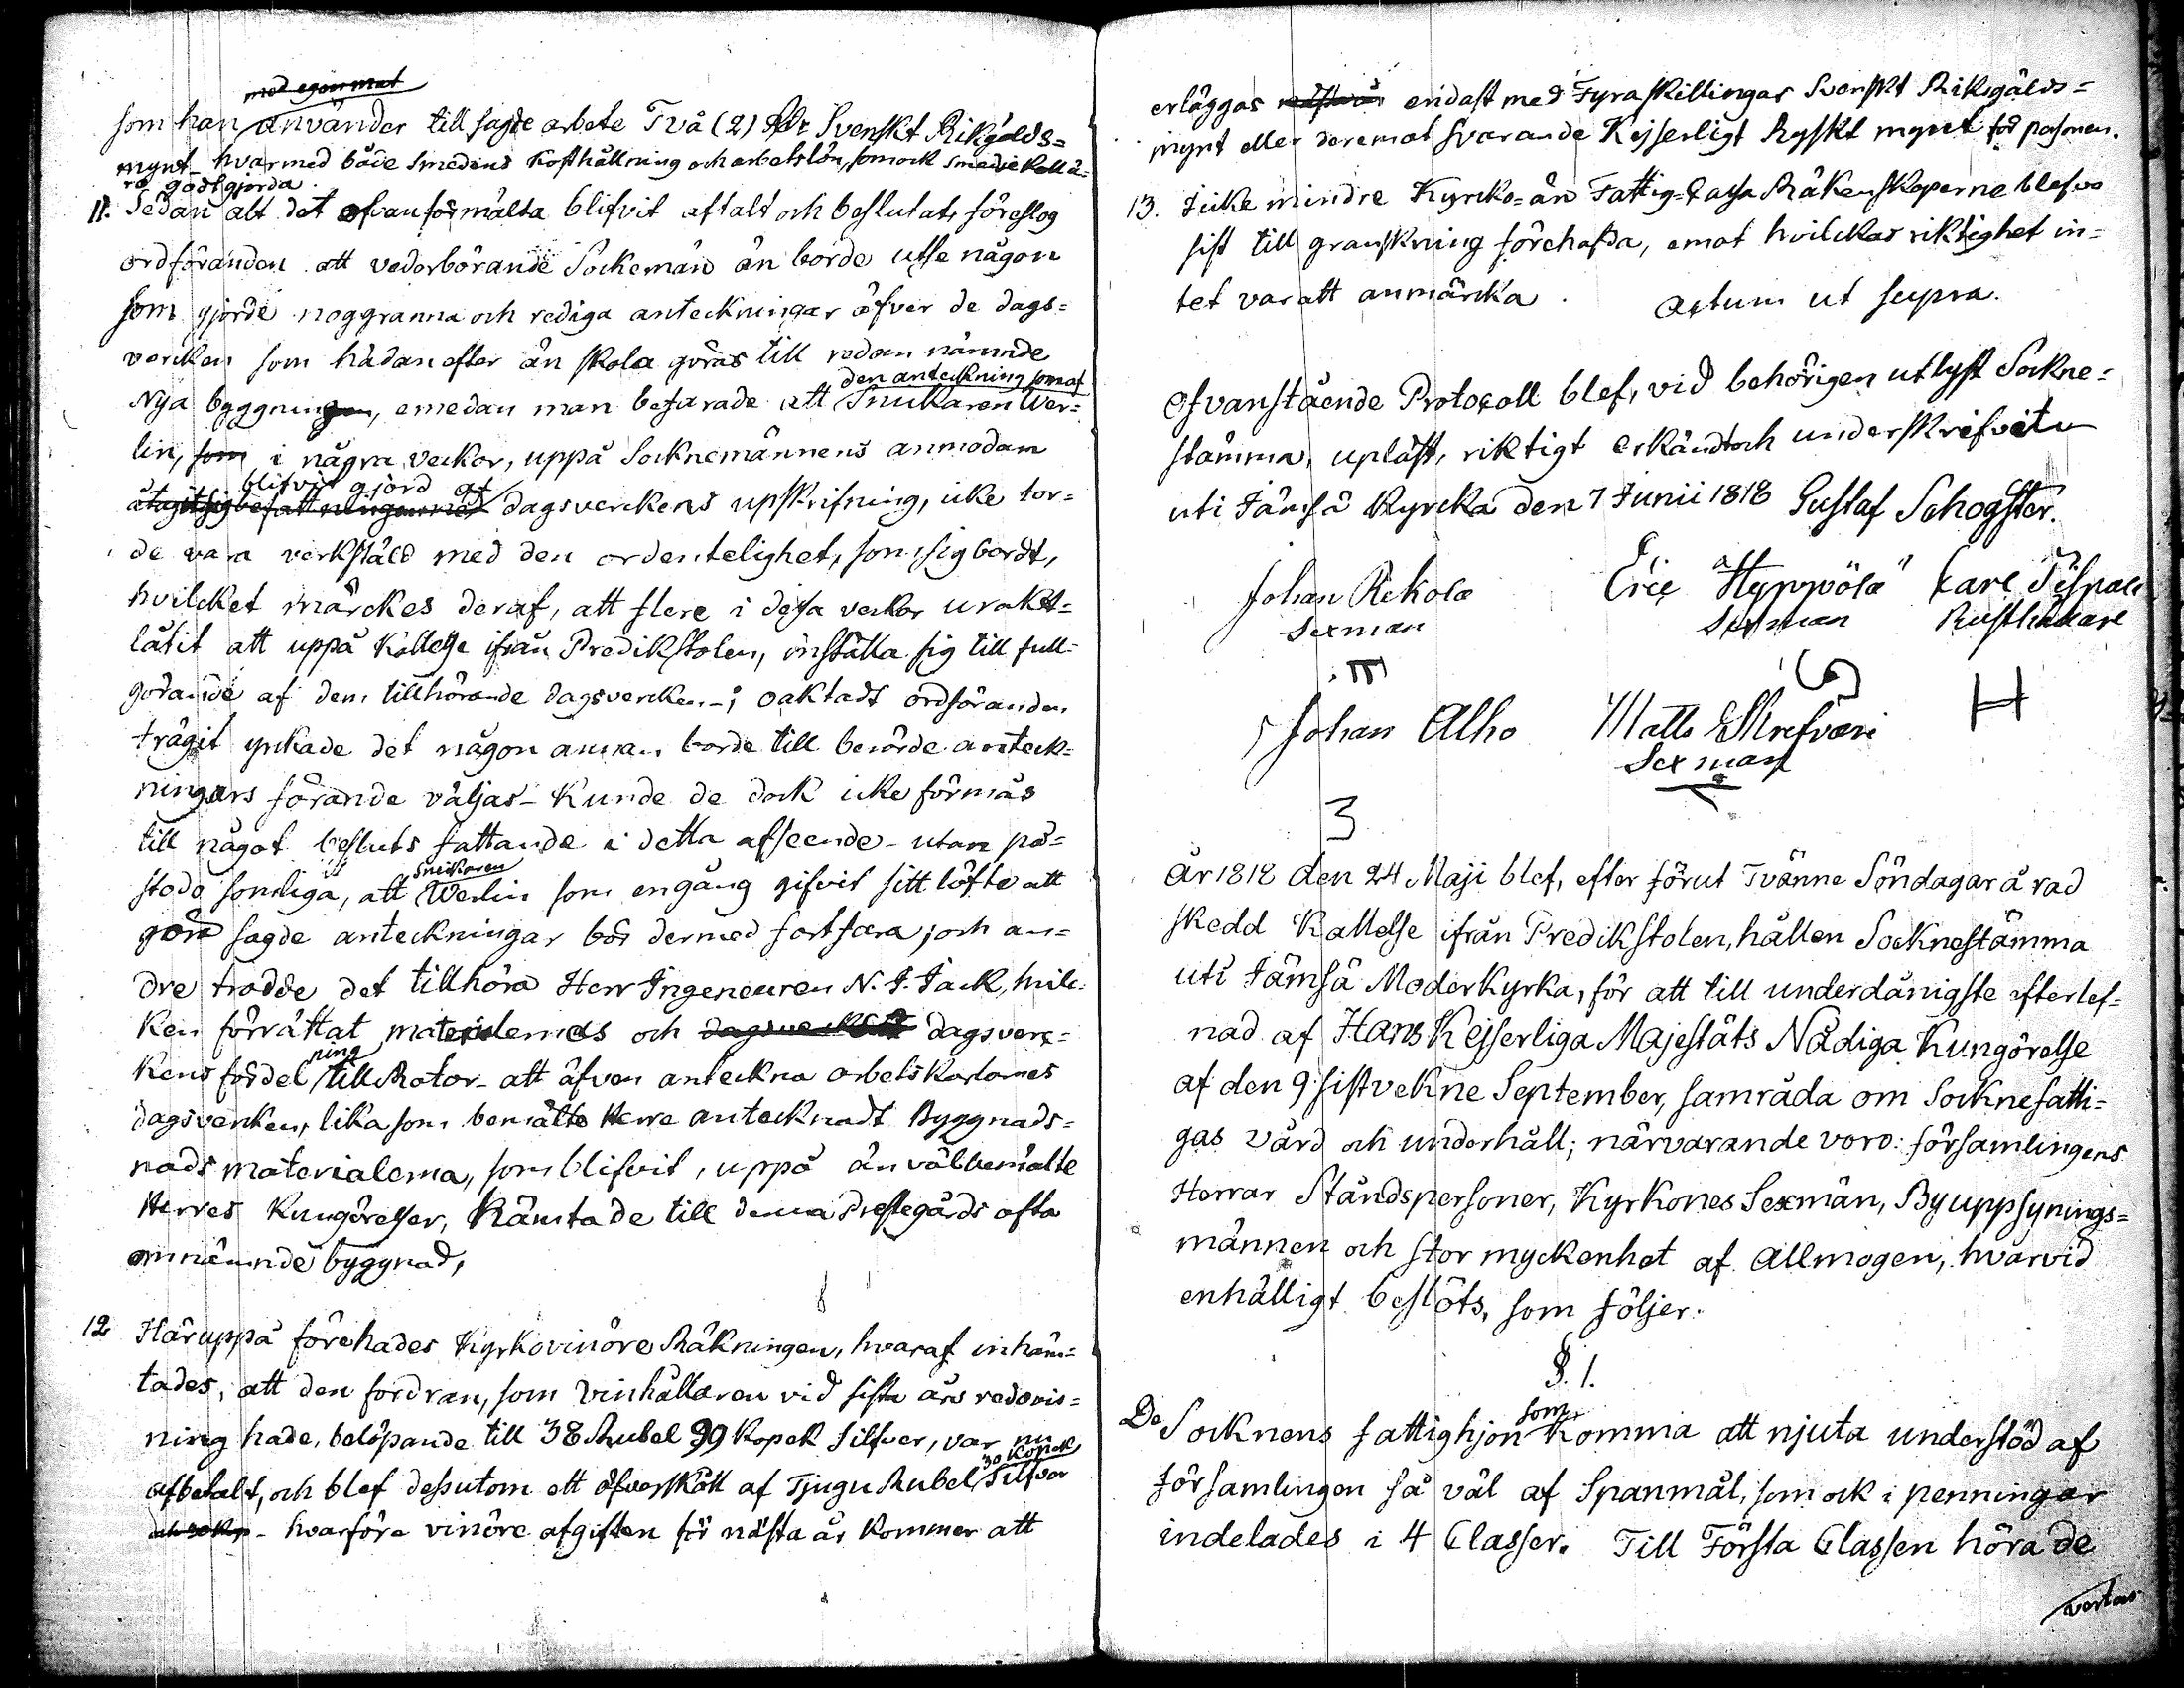 med egen mat
som han använder till sagde arbete Två (2) Rdr Svenskt Rikgälds=
mynt hvarmed både smedens kosthållning och arbetslön, som ock smediekoll ä=
ro godtgjorda.
11. Sedan alt det ofvanförmälta blifvit aftalt och beslutat, föreslog
ordföranden att vederbörande Sockemän än borde utse någon
som gjorde noggranna och rediga anteckningar öfver de dags=
vercken som hädanefter än skola göras till redan nämnde
den anteckning som af
Nya byggningen, emedan man befarade att Snickaren Wer=
lin, som i några veckor, uppå Socknemännens anmodan
blifvit gjord af
åtagit sig befattningen med dagsverckens upskrifning, icke tor=
de vara verkstäld med den ordentelighet, som sig bordt,
hvilcket märckes deraf, att flere i dessa veckor urakt=
låtit att uppå kallelse ifrån Predikstolen, inställa sig till full=
görande af dem tillhörande dagsvercken; oaktadt ordföranden
trägit yrkade det någon annan borde till berörde anteck=
ningars förande väljas - Kunde de dock icke förmås
till något besluts fattande i detta afseende - utan på=
Snickaren
stodo somliga, att Werlin som engång gifvit sitt löfte att
göra sagde anteckningar bör dermed fortfara; och an=
dre trodde det tillhöra Herr Ingeneuren N. J. Jack, hvilc=
ken förrättat materialernas och dagsverckets dagsverc=
ning
kens fördel till Rotor - att äfven anteckna arbetskarlarnes
dagsvercken, lika som bemälte Herre antecknadt Byggnads=
nads materialerna, som blifvit, uppå än välbemälte
Herres Kungörelser, hämtade till denna Prestegårds ofta
omnämnde byggnad,
12 Häruppå förehades Kyrkovinöre Räkningen, hvaraf inhäm=
tades, att den fordran, som Vinhållaren vid sista års redovis=
ning hade, belöpande till 38 Rubel 99 Kopek Silfver, var nu
30 Kopek
afbetalt, och blef dessutom ett öfverskott af Tjugu Rubel Silfver
och 30 Kop - hvarföre vinöre afgiften för nästa år kommer att
erläggas nästa år endast med Fyra skillingar Svenskt Riksgälds=
mynt eller deremot svarande Kejserligt Ryskt mynt för personen.
13. Icke mindre Kyrcko= än Fattig=Cassa Räkenskaperne blefvo
sist till granskning förehafda, emot hvilckas riktighet in=
tet var att anmärcka. Actum ut supra.
Ofvanstående Protocoll blef, vid behörigen utlyst Sockne=
stämma, upläst, riktigt erkändt och underskrifvit
uti Jämsä Kyrcka den 7 Junii 1818 Gustaf Schogster.
Johan Rekola
Sexman
Eric Hyppölä
Sexman
Carl
Rusthållare
Johan Alho
Matts
Sexman
H
3
År 1818 den 24 Maji blef, efter förut Tvänne Söndagar å rad
skedd Kallelse ifrån Predikstolen, hållen Socknestämma
uti Jämsä Moderkyrka, för att till underdånigste efterlef=
nad af Hans Kejserliga Majestäts Nådiga Kungörelse
af den 9 sistvekne September, samråda om Sockne fatti=
gas vård och underhåll; närvarande voro: församlingens
Herrar Ståndspersoner, Kyrkones Sexmän, Byuppsynings=
männen och stor myckenhet af Allmogen, hvarvid
enhälligt beslöts, som följer.
§. 1.
som
De Socknens fattighjon Komma att njuta understöd af
Församlingen så väl af Spanmål, som ock i penningar
indelades i 4 Classer. Till Första Classen höra de
vertas